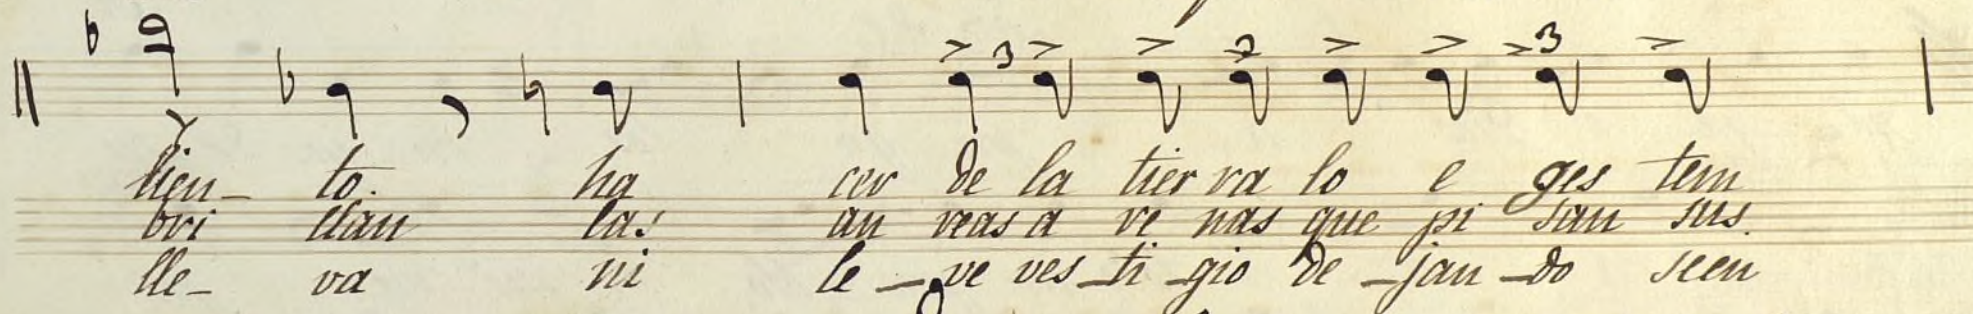 lien- to. ha cer de la tier ra lo e ges tem
bri llan las au reas a re nas que pi san sus.
lle- va ni le - ve ves - ti - gio de - jan - do seen